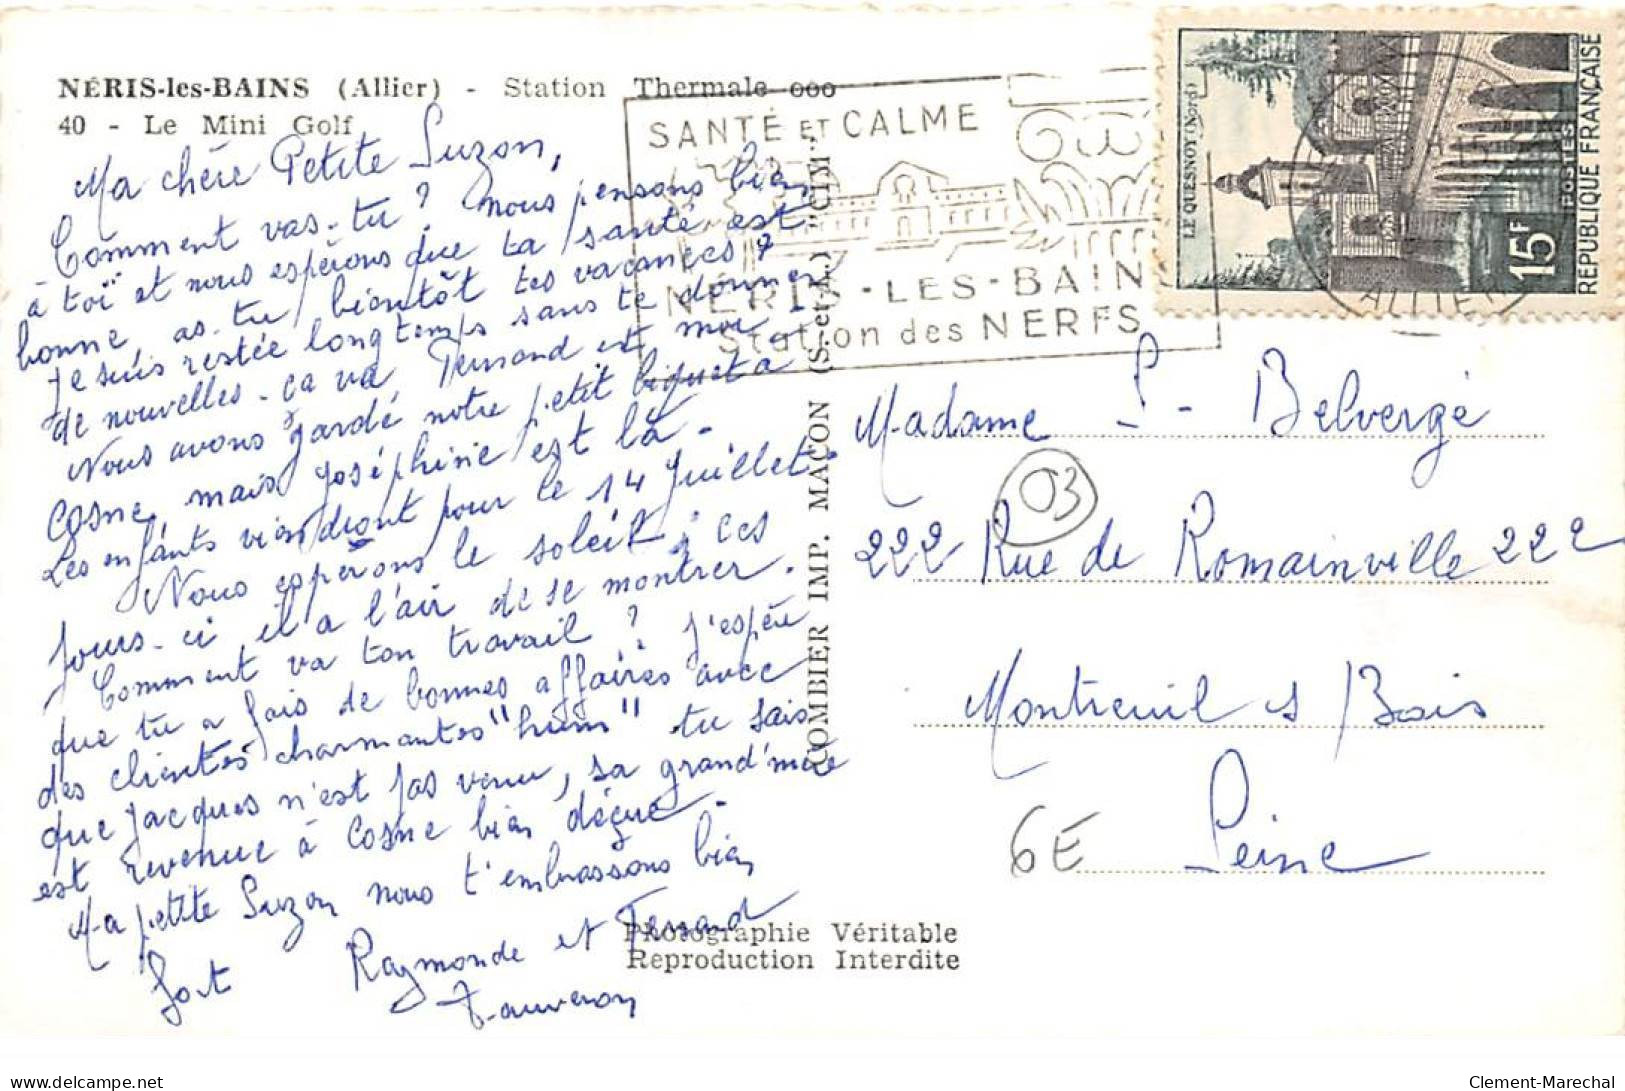 NÉRIS-les-BAINS (Allier) - Station Thermale ooo
40 - Le Mini Golf
Ma chère Petite Suzon,
Comment vas-tu ? nous pensons bien
à toï et nous espèrons que ta santé est
bonne as-tu bientôt tes vacances ?
Je suis restée longtemps sans te donner
de nouvelles - ça va, Fernand et moi -
Nous avons gardé notre petit biquet à
Cosne, mais Joséphine est là -
Les enfants viendront pour le 14 Juillet.
Nous espérons le soleil, ces
jours-ci il a l'air de se montrer.
Comment va ton travail ? J'espère
que tu a fais de bonnes affaires avec
des clientes charmantes "hum" tu sais
que Jacques n'est pas venu, sa grand'mère
est revenue à Cosne bien déçue -
Ma petite Suzon nous t'embrassons bien
fort Raymonde et Fernand
SANTÉ ET CALME
NERIS-LES-BAIN
Station des NERFS
COMBIER IMP. MACON (S.-et-L.) "CIM"
LE QUESNOY (Nord)
15F
POSTES
RÉPUBLIQUE FRANÇAISE
ALLIER
Madame S - Belvergé
03
222 Rue de Romainville 222
Montreuil s/ Bois
6E Seine
Photographie Véritable
Reproduction Interdite
delcampe.net
Clement-Marechal